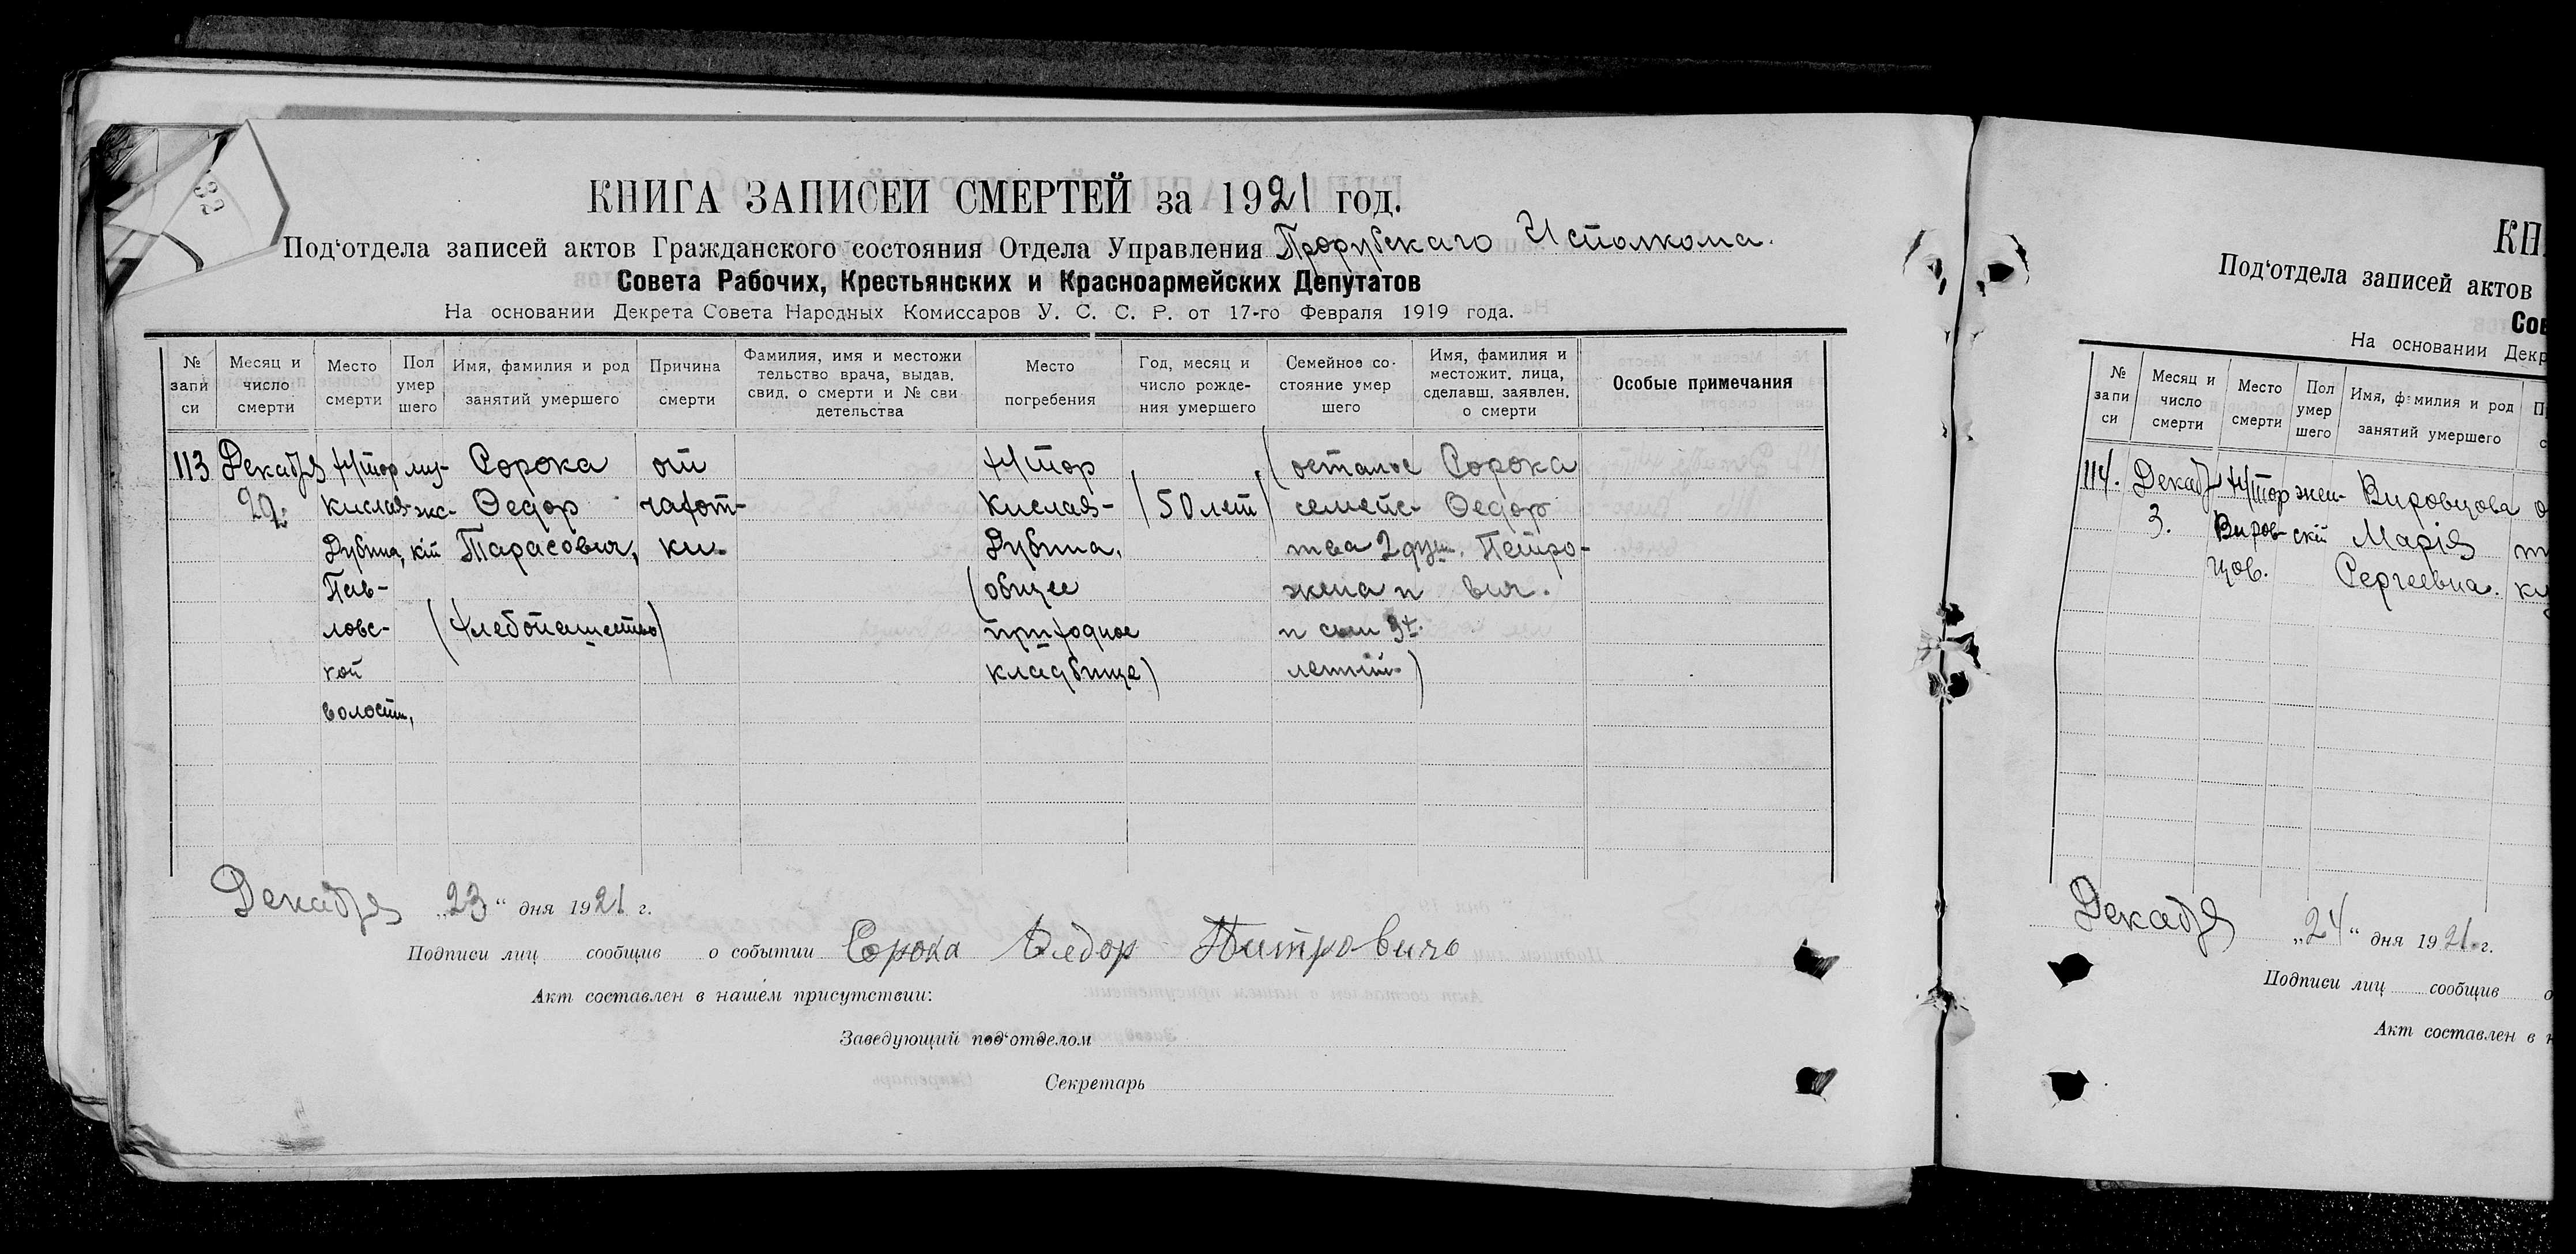 92
КНИГА ЗАПИСЕЙ СМЕРТЕЙ за 1921 год.
Под‘отдела записей актов Гражданского состояния Отдела Управления Прорубскаго Исполкома.
Совета Рабочих, Крестьянских и Красноармейских Депутатов
На основании Декрета Совета Народных Комиссаров У. С. С. Р. от 17-го Февраля 1919 года.
№ запи си
Месяц и число смерти
Место смерти
Пол умер шего
Имя, фамилия и род занятий умершего
Причина смерти
Фамилия, имя и местожи тельство врача, выдав. свид. о смерти и № сви детельства
Место погребения
Год, месяц и число рожде- ния умершего
Семейное со- стояние умер шего
Имя, фамилия и местожит. лица, сделавш. заявлен. о смерти
Особые примечания
113 Декабря Хутор му- Сорока от Хутор (осталос Сорока
22. Кислая- жс- Федор чахот- Кислая- (50 лет) семейс- Федор
Дубина, кій Тарасович, ки. Дубина, тва 2 душ. Петро-
Пав- (общее жена и вич.
ловс- (Хлебопашество) приходное и сын 9х.
кой кладбище) летній)
волости,
Декабря „23“ дня 1921 г.
Подписи лиц сообщив о событии Сорока Федор Питровичь
Акт составлен в нашем присутствии:
Заведующий под‘отделом
Секретарь
КН
Под‘отдела записей актов
Сов
На основании Декр
№ запи си
Месяц и число смерти
Место смерти
Пол умер шего
Имя, фамилия и род занятий умершего
П
с
114. Декаб Хутор жен- Вировцова о
3. Виров- скій Марія т
цов. Сергеевна. ку
Декабря „24“ дня 1921 г.
Подписи лиц сообщив о
Акт составлен в н